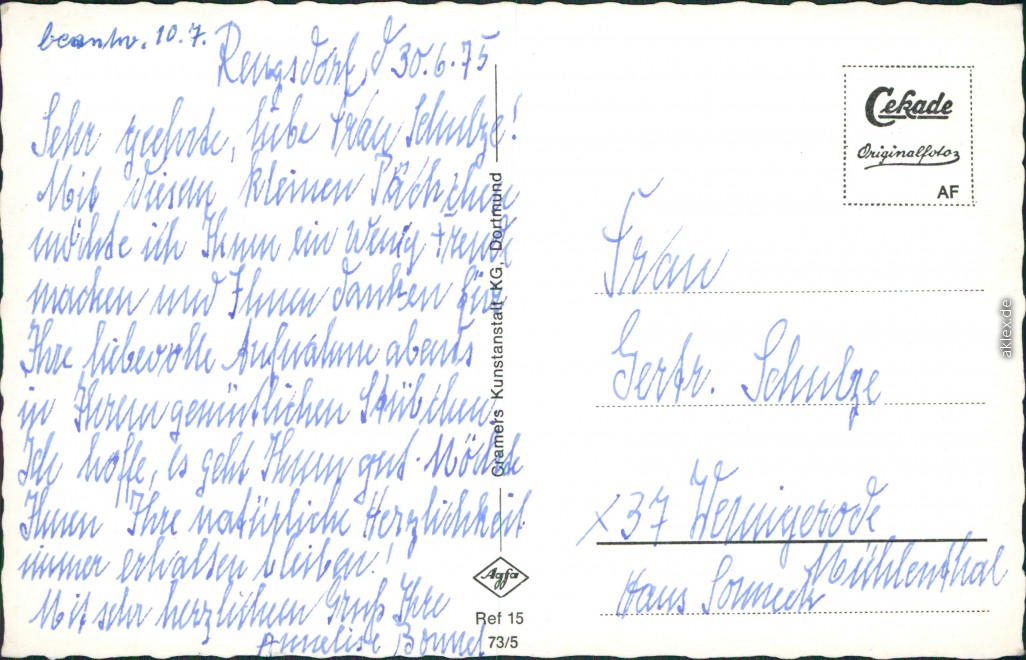 beantw. 10.7.
Rengsdorf, d 30.6.75
Sehr geehrte, liebe Frau Schulze!
Mit diesem kleinen Päckchen
möchte ich Ihnen ein wenig Freude
machen und Ihnen danken für
Ihre liebevolle Aufnahme abends
in Ihrem gemütlichen Stübchen.
Ich hoffe, es geht Ihnen gut. Möchte
Ihnen Ihre natürliche Herzlichkeit
immer erhalten bleiben!
Mit sehr herzlichem Gruß Ihre
Annelise
Cramers Kunstanstalt KG, Dortmund
Agfa
Ref 15
73/5
Cekade
Originalfoto
AF
Frau
Gertr. Schulze
x 37 Wernigerode
Mühlenthal
Haus Sonneck
aklex.de